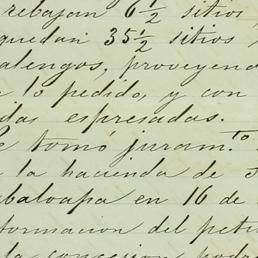 rebajan 6 1/2 sitios,
quedan 35 1/2 sitios
alengos, proveyend
lo pedido, y con
das espresadas.
e tomó juram.to
la hacienda de
baloapa en 16 de
formacion del peti
la concesion